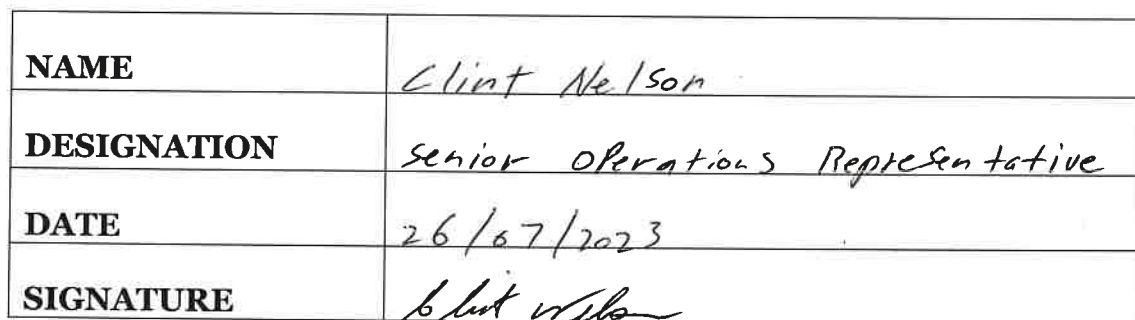 NAME Clint Nelson
DESIGNATION Senior Operations Representative
DATE 26/07/2023
SIGNATURE